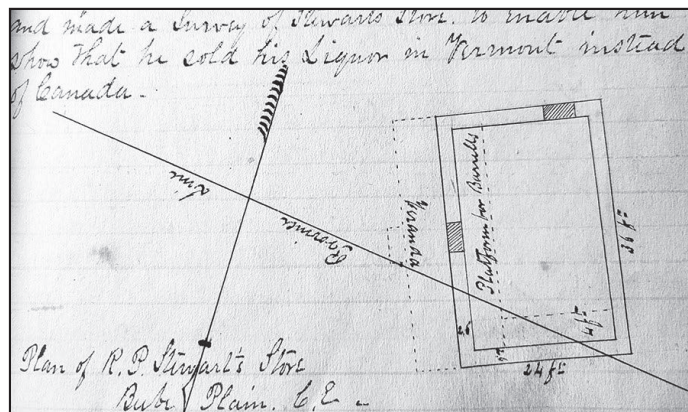 and made a Survey of Stewarts Store. to enable him
show that he sold his Liquor in Vermont instead
of Canada.-
Line
Province
Veranda
Platform for Barrells
36 ft
4 ft
26
26
24 ft
Plan of R.P. Stewart's Store
Bube Plain. C.E.-